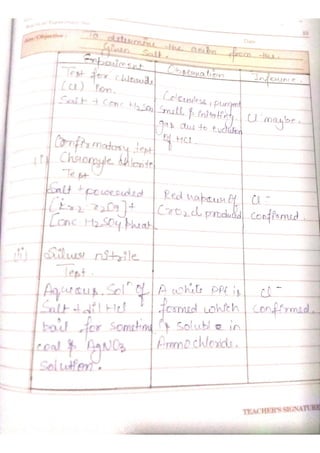 Aim/Objective : To determine the anion from the
Given Salt.
Date
Experiment Observation Inference.
Test for chloride
(Cl) Ion.
Salt + Conc H2SO4
Colourless, pungent
smell & irritating
gas due to evolution
of HCl.
Cl maybe.
Confirmatory test
(i) Chromyle chloride
Test
Salt + powdered
[K2Cr2O7] +
[Conc H2SO4] heat.
Red vapours of
CrO2Cl produced
Cl-
confirmed.
(ii) Silver nitrile
Test.
Aqueous Soln of
Salt + dil HCl
boil for sometime
cool & AgNO3
solution.
A white PPt is
formed which
is soluble in
Ammochloride.
Cl-
confirmed.
TEACHER'S SIGNATURE